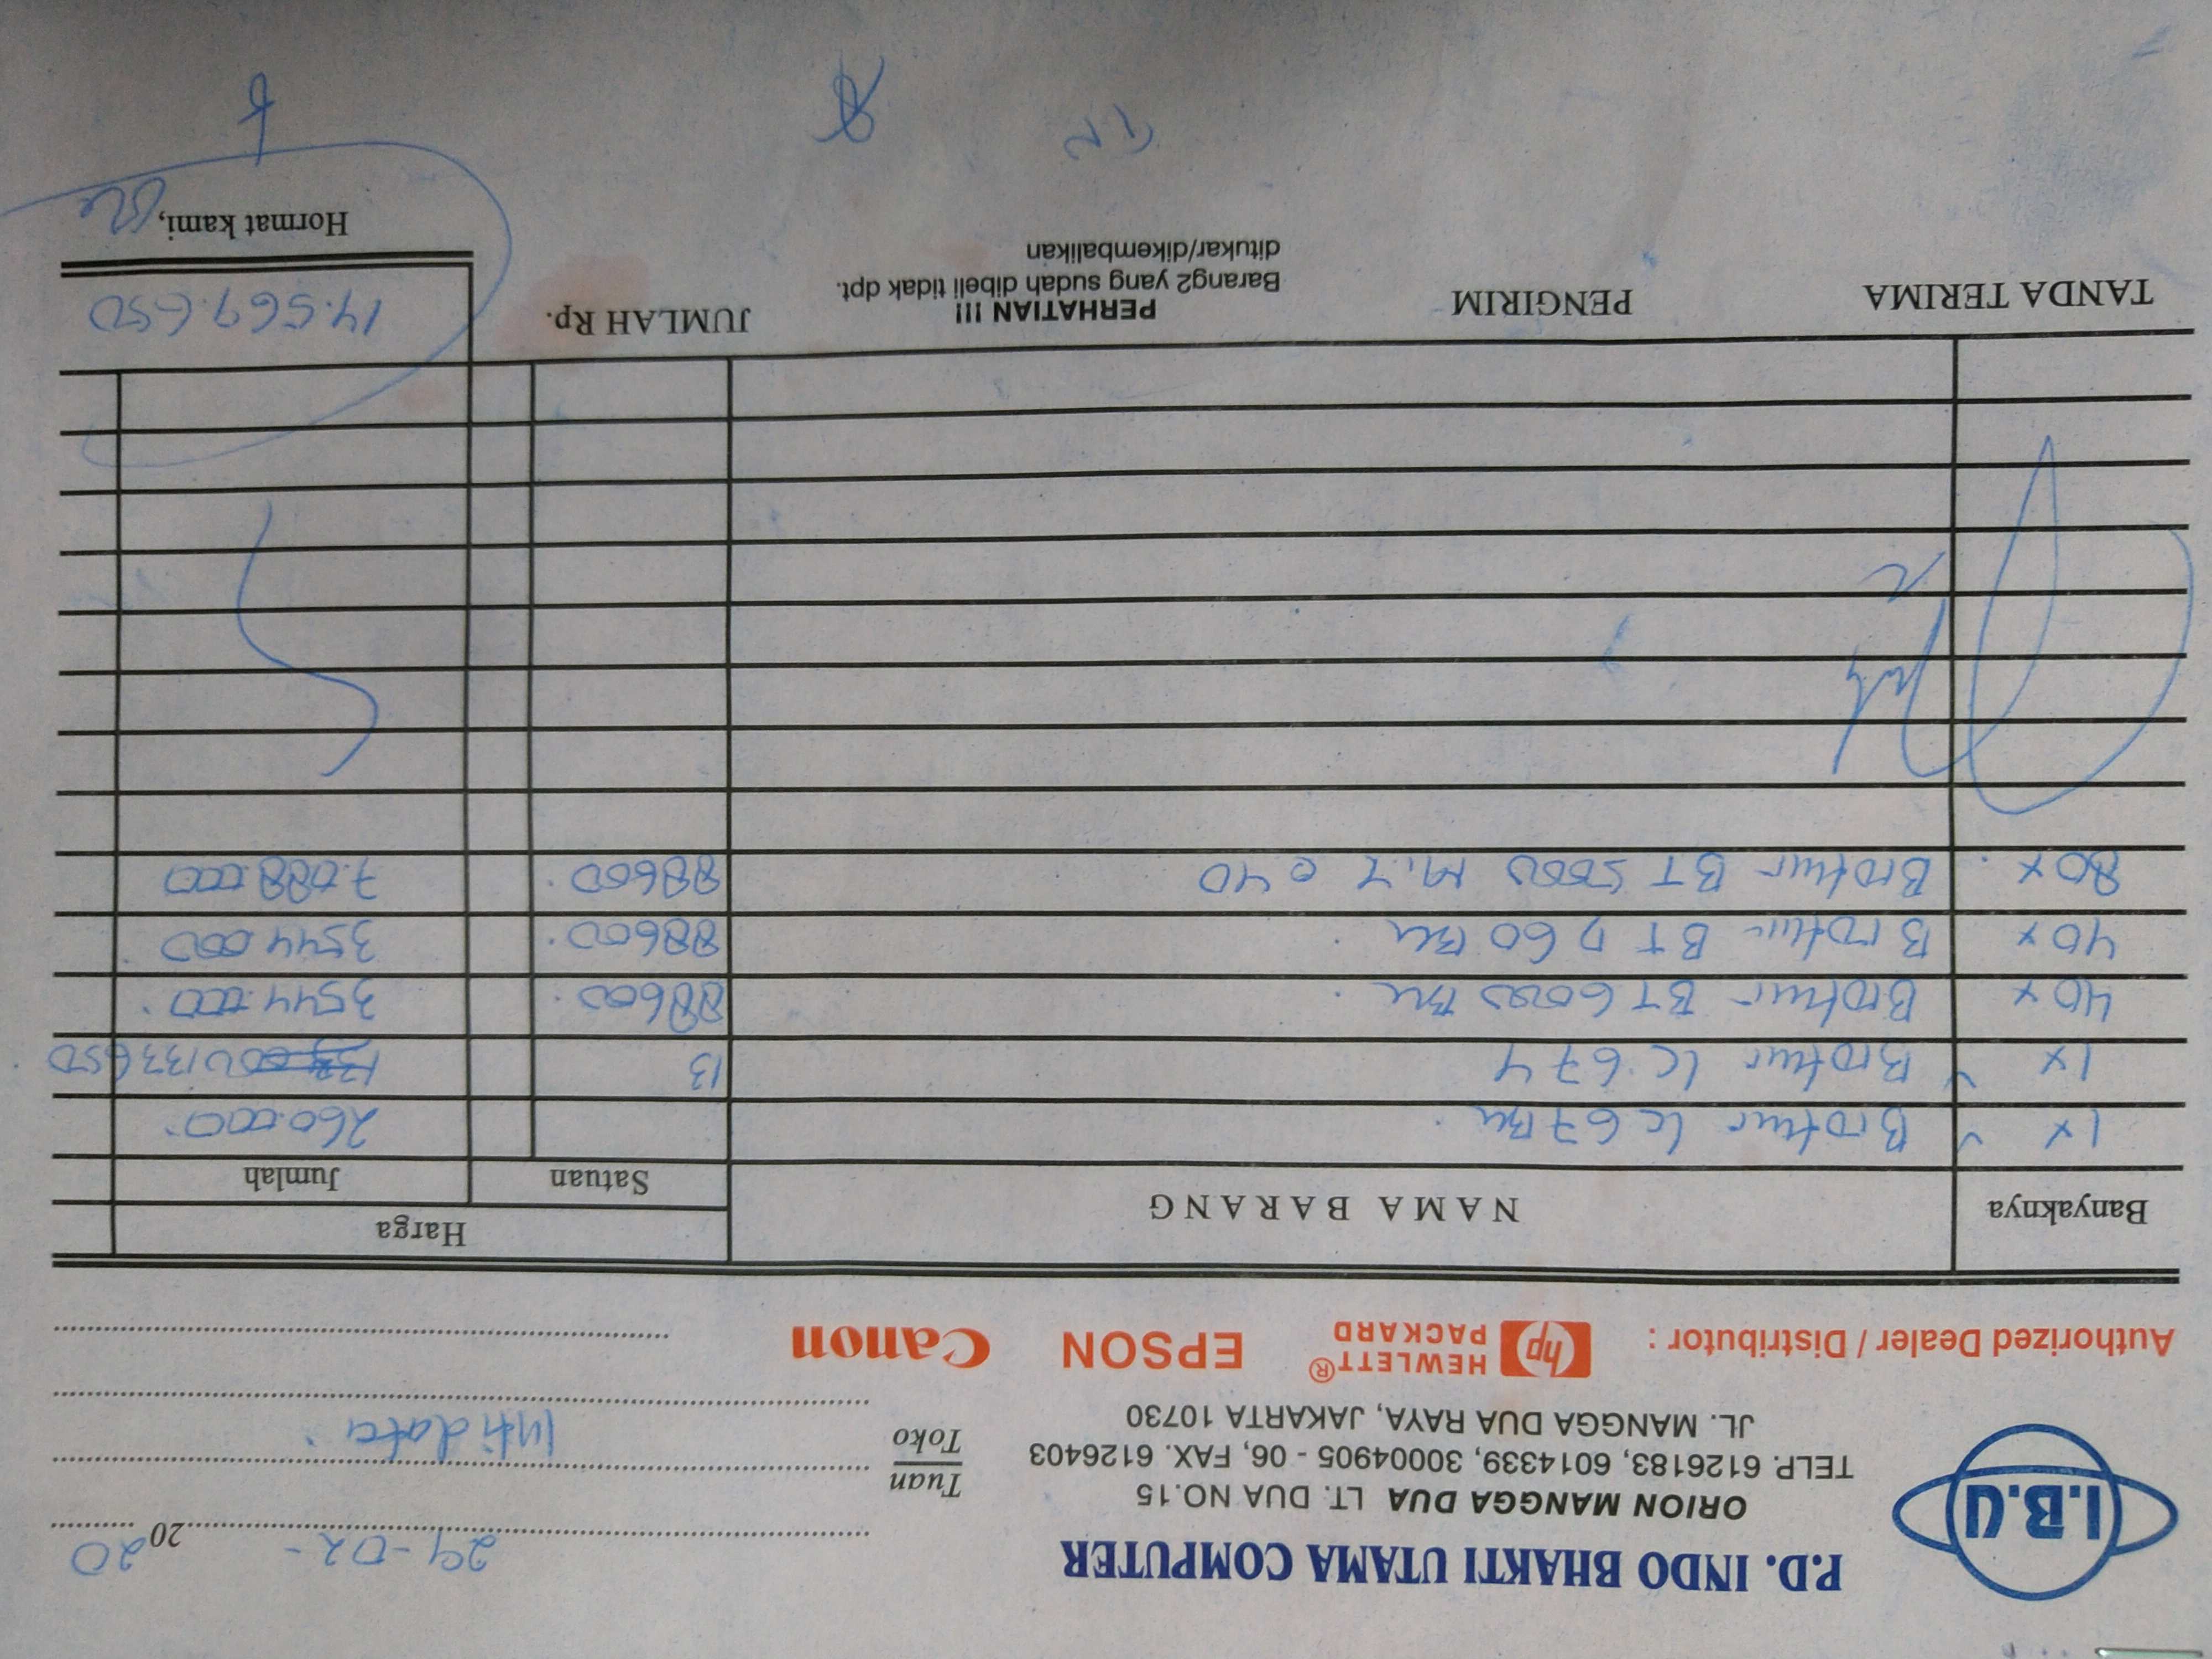 P.D. INDO BHAKTI UTAMA COMPUTER
I.B.U
ORION MANGGA DUA LT. DUA NO.15
TELP. 6126183, 6014339, 30004905 - 06, FAX. 6126403
JL. MANGGA DUA RAYA, JAKARTA 10730
Authorized Dealer / Distributor : hp HEWLETT® PACKARD EPSON Canon
24-02- 20 20
Tuan
Toko
Intidata.
Banyaknya NAMA BARANG Harga
Satuan Jumlah
1x Brother LC 67 Bu. 260.000.
1x Brother LC 67 Y 13 133.650
40x Brother BT 6000 Bu. 88600. 3544.000.
40x Brother BT D 60 Bu. 88600. 3544.000
80x. Brother BT 5000 M.Y @ 40 88600. 7.088.000
TANDA TERIMA PENGIRIM PERHATIAN !!! JUMLAH Rp. 14.569.650
Barang2 yang sudah dibeli tidak dpt.
ditukar/dikembalikan
Hormat kami,